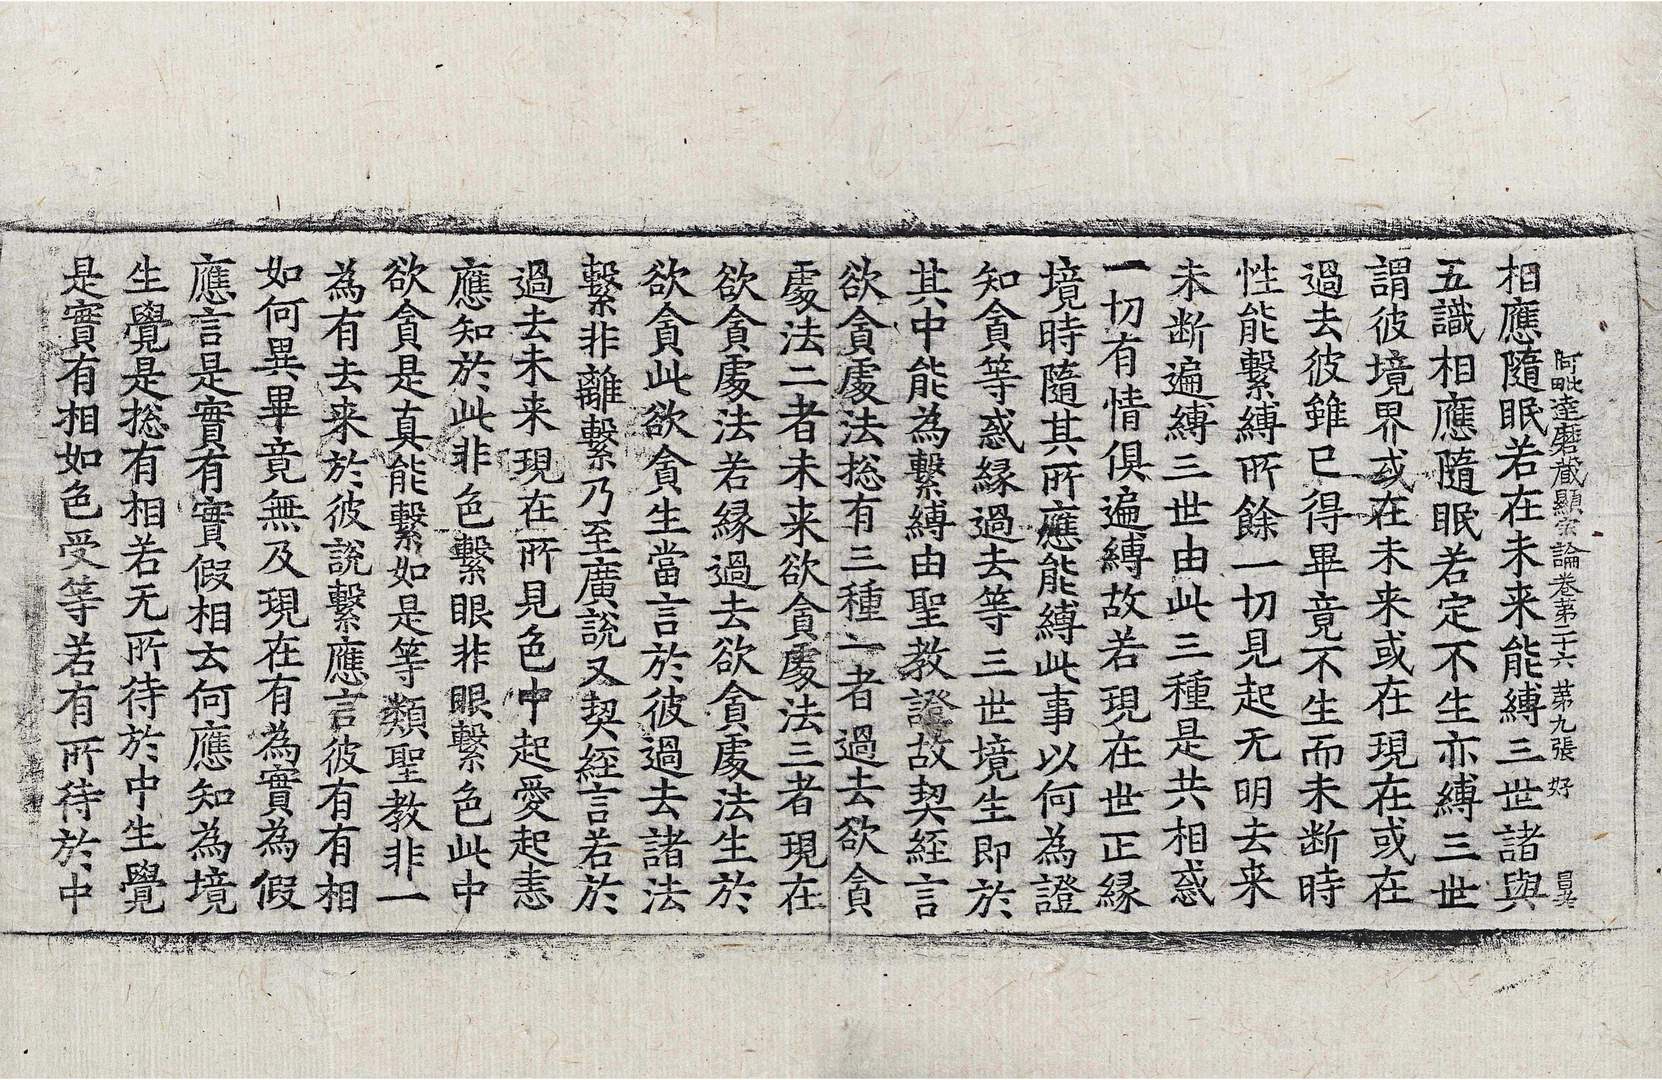 阿毗達磨藏顯宗論卷第二十六 苐九張 好
相應隨眠若在未来能縛三世諸與
五識相應隨眠若定不生亦縛三世
謂彼境界或在未来或在現在或在
過去彼雖已得畢竟不生而未断時
性能繫縛所餘一切見起无明去来
未断遍縛三世由此三種是共相惑
一切有情俱遍縛故若現在世正緣
境時隨其所應能縛此事以何為證
知貪等惑緣過去等三世境生即於
其中能為繫縛由聖教證故契經言
欲貪處法惣有三種一者過去欲貪
處法二者未来欲貪處法三者現在
欲貪處法若緣過去欲貪處法生於
欲貪此欲貪生當言於彼過去諸法
繫非離繫乃至廣說又契經言若於
過去未来現在所見色中起愛起恚
應知於此非色繫眼非眼繫色此中
欲貪是真能繫如是等類聖教非一
為有去来於彼說繫應言彼有有相
如何異畢竟無及現在有為實為假
應言是實有實假相云何應知為境
生覺是惣有相若无所待於中生覺
是實有相如色受等若有所待於中